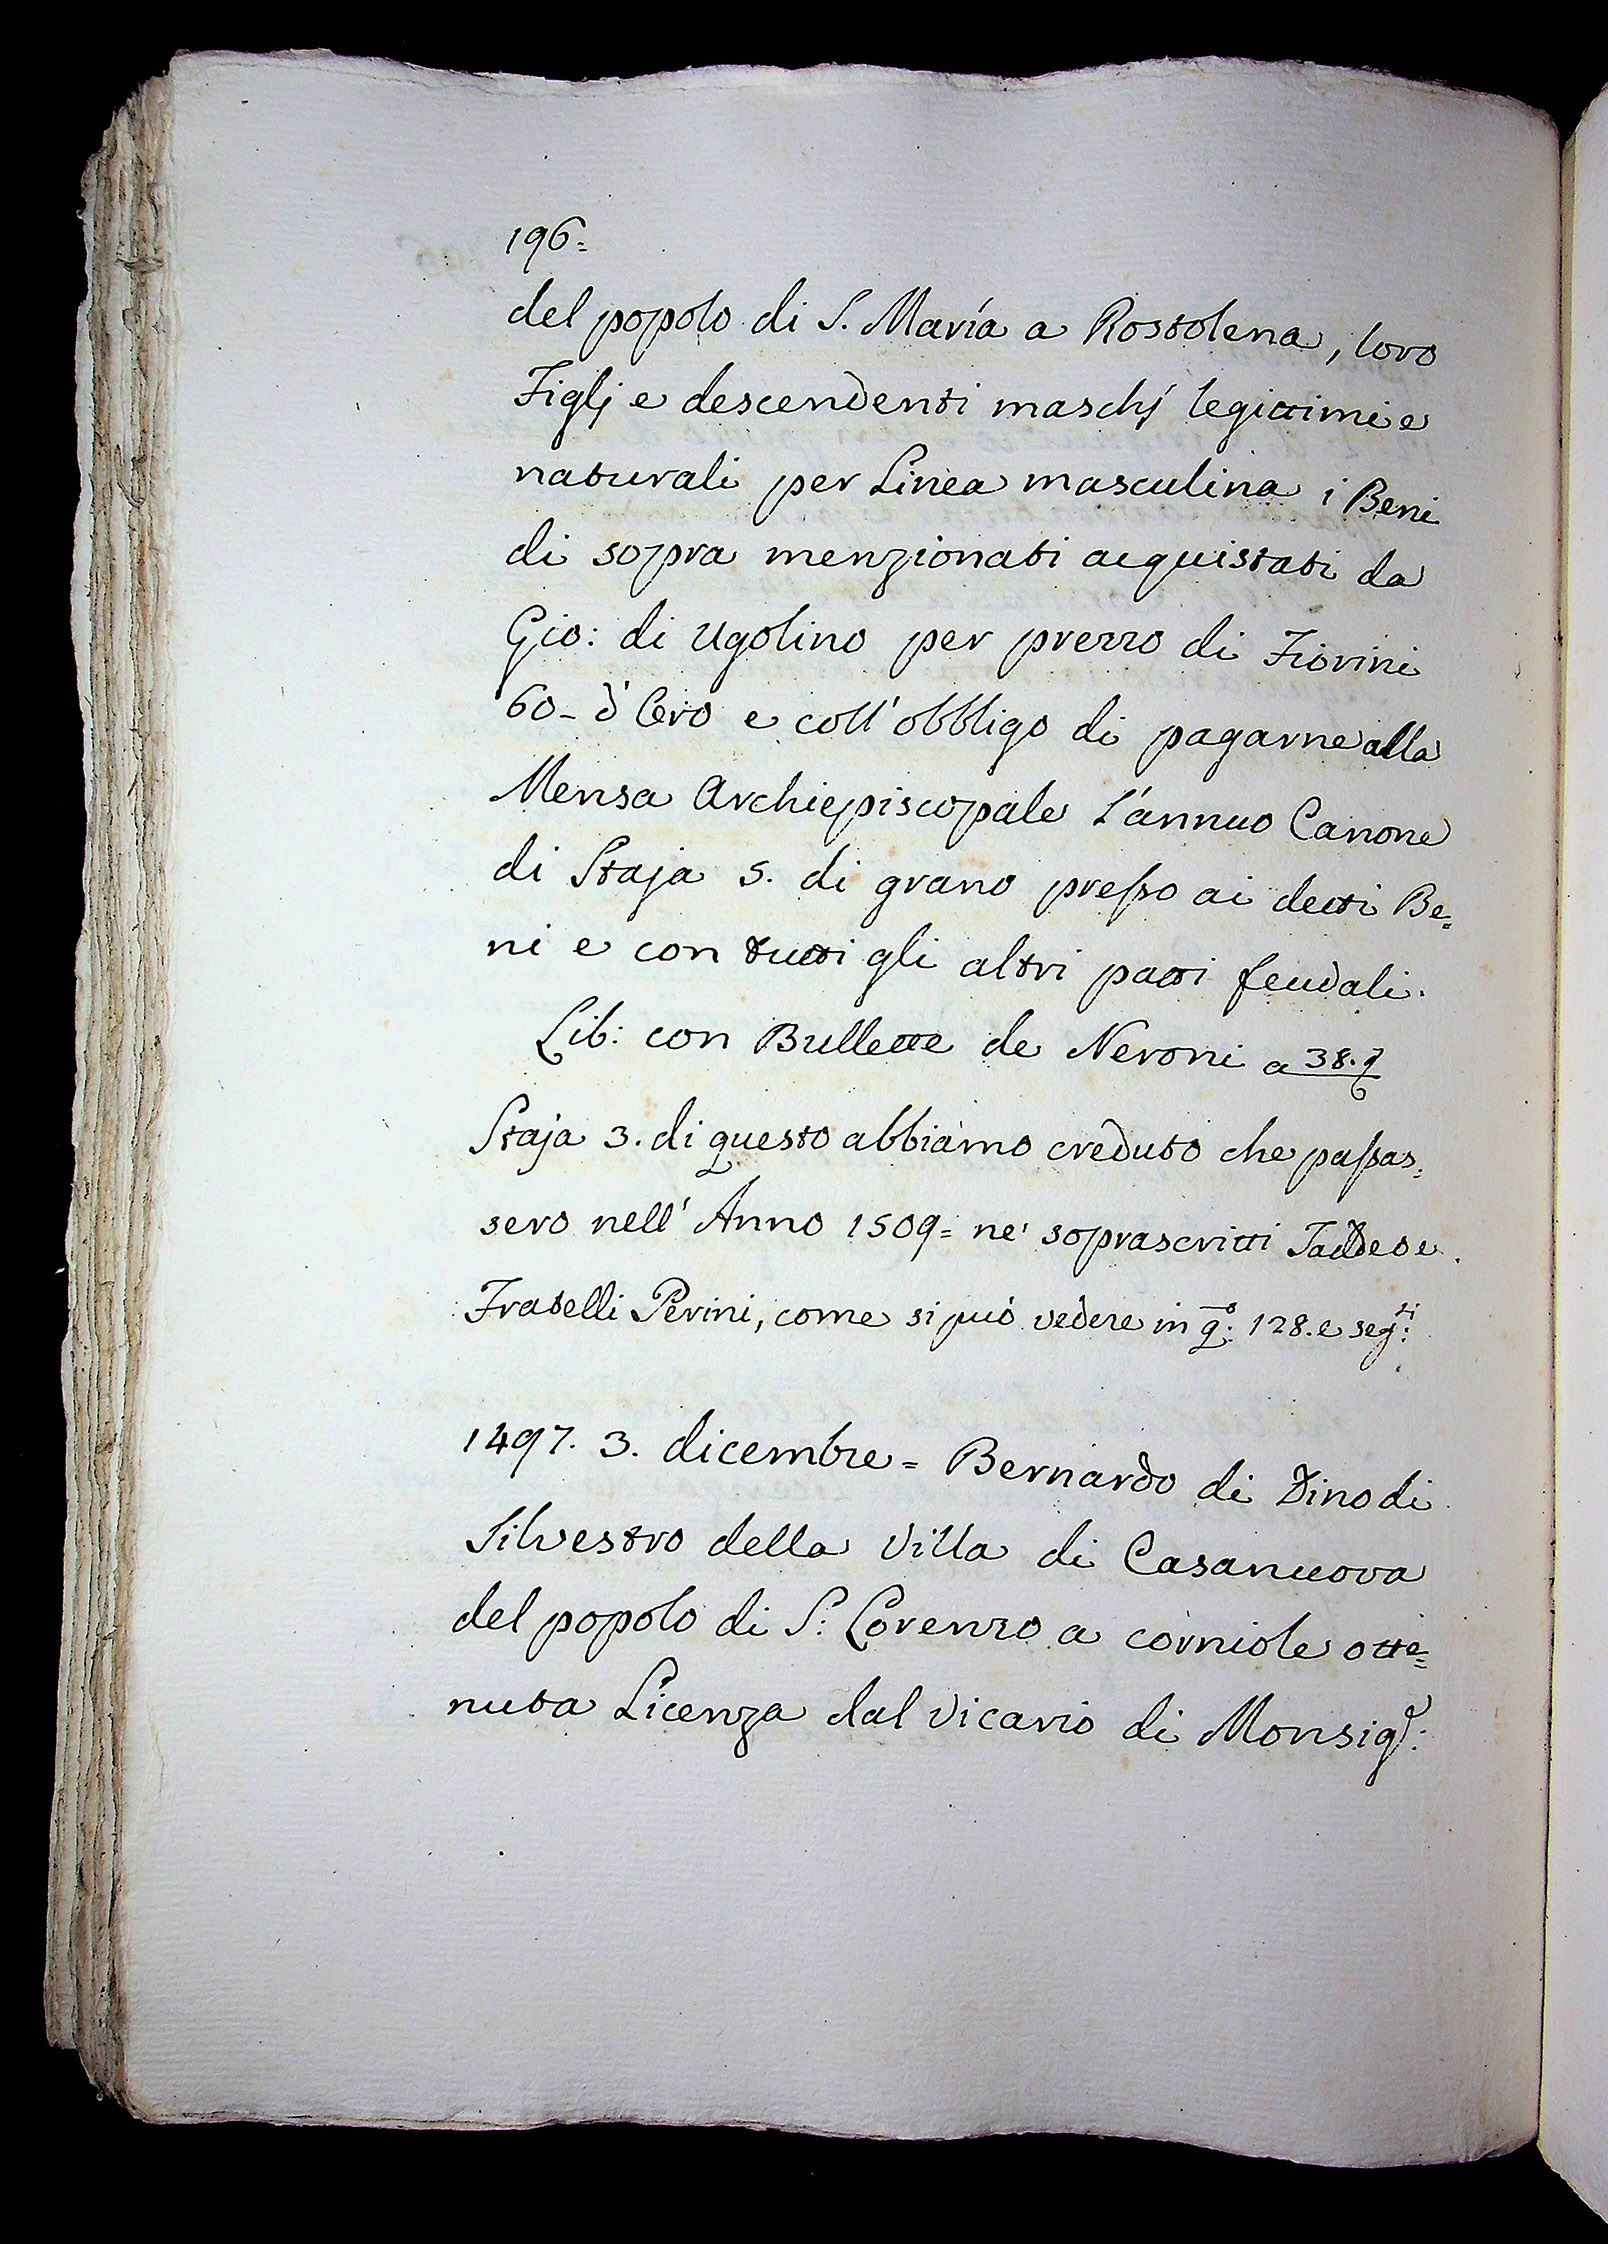 196=
del popolo di S. Maria a Rostolena, loro
Figlj e descendenti maschj legittimi e
naturali per Linea masculina i Beni
di sopra menzionati acquistati da
Gio: di Ugolino per prezzo di Fiorini
60- d'Oro e coll'obbligo di pagarne alla
Mensa Archiepiscopale l'annuo Canone
di Staja 5. di grano presso ai detti Be=
ni e con tutti gli altri patti feudali.
Lib: con Bullette de Neroni a 38.
Staja 3. di questo abbiamo creduto che passas=
sero nell'Anno 1509= ne' soprascritti Taddeo e
Fratelli Perini, come si può vedere in q.o: 128. e seg.ti:
1497. 3. dicembre= Bernardo di Dino di
Silvestro della Villa di Casanuova
del popolo di S: Lorenzo a corniole otte=
nuta Licenza dal Vicario di Monsig.r: